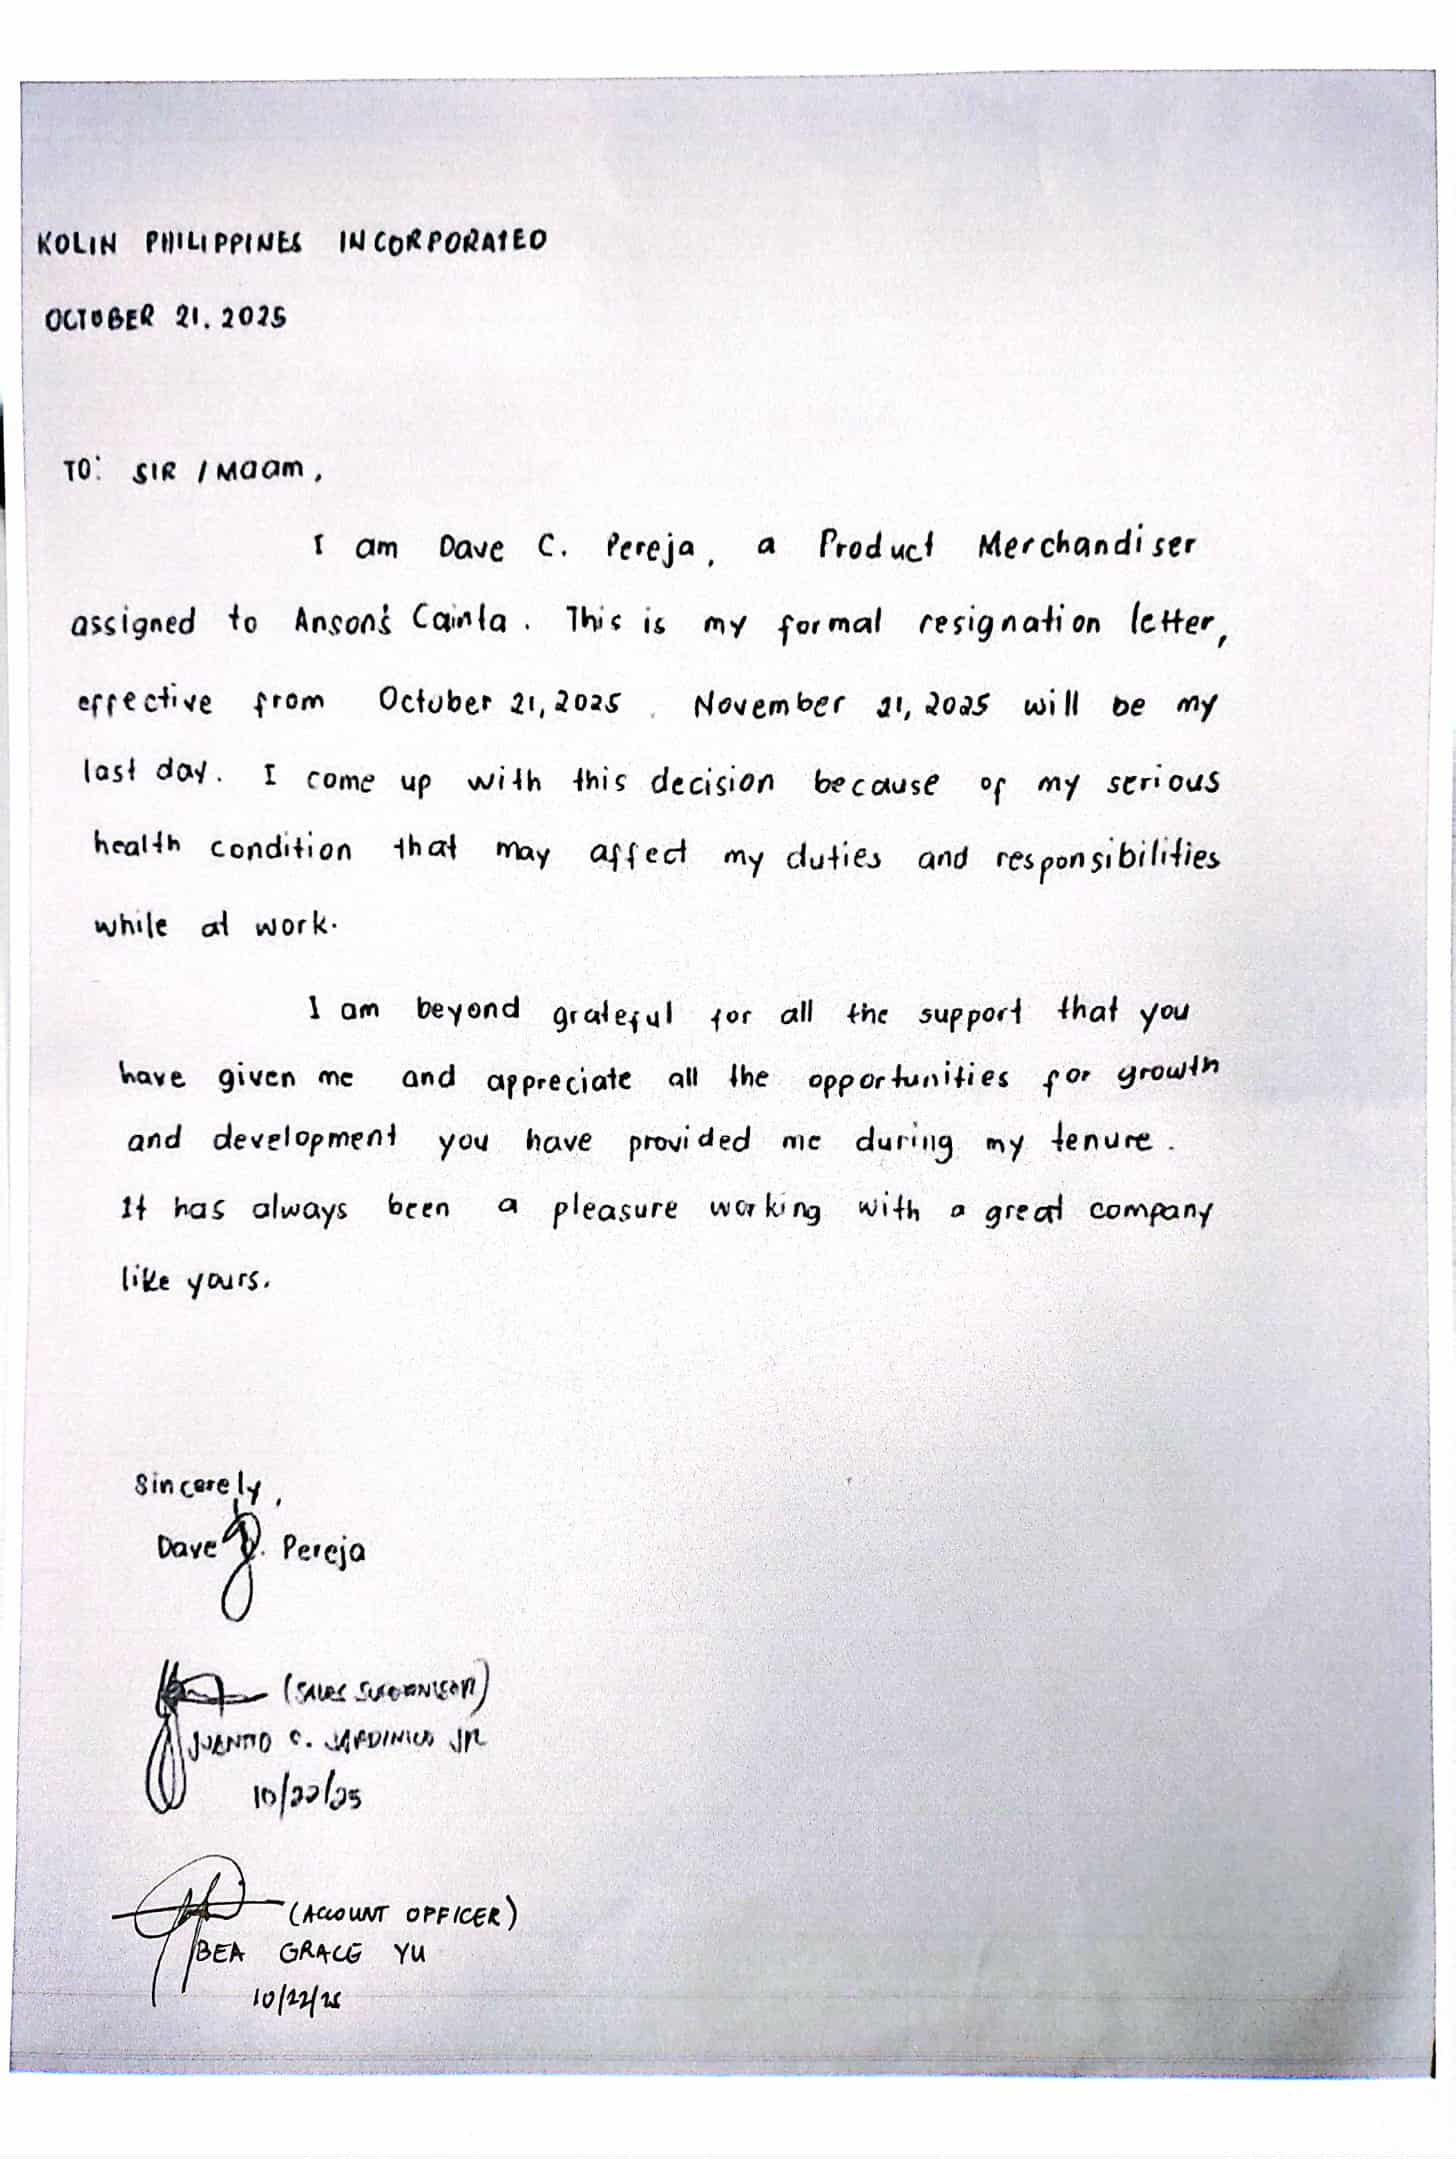 KOLIN PHILIPPINES INCORPORATED
OCTOBER 21, 2025
TO: SIR / Maam,
I am Dave C. Pereja, a Product Merchandiser
assigned to Anson's Cainta. This is my formal resignation letter,
effective from October 21, 2025. November 21, 2025 will be my
last day. I come up with this decision because of my serious
health condition that may affect my duties and responsibilities
while at work.
I am beyond grateful for all the support that you
have given me and appreciate all the opportunities for growth
and development you have provided me during my tenure.
It has always been a pleasure working with a great company
like yours.
Sincerely,
Dave Pereja
(SALES SUPERVISOR)
C. JARDINICO JR
10/22/25
(ACCOUNT OFFICER)
BEA GRACE YU
10/22/25